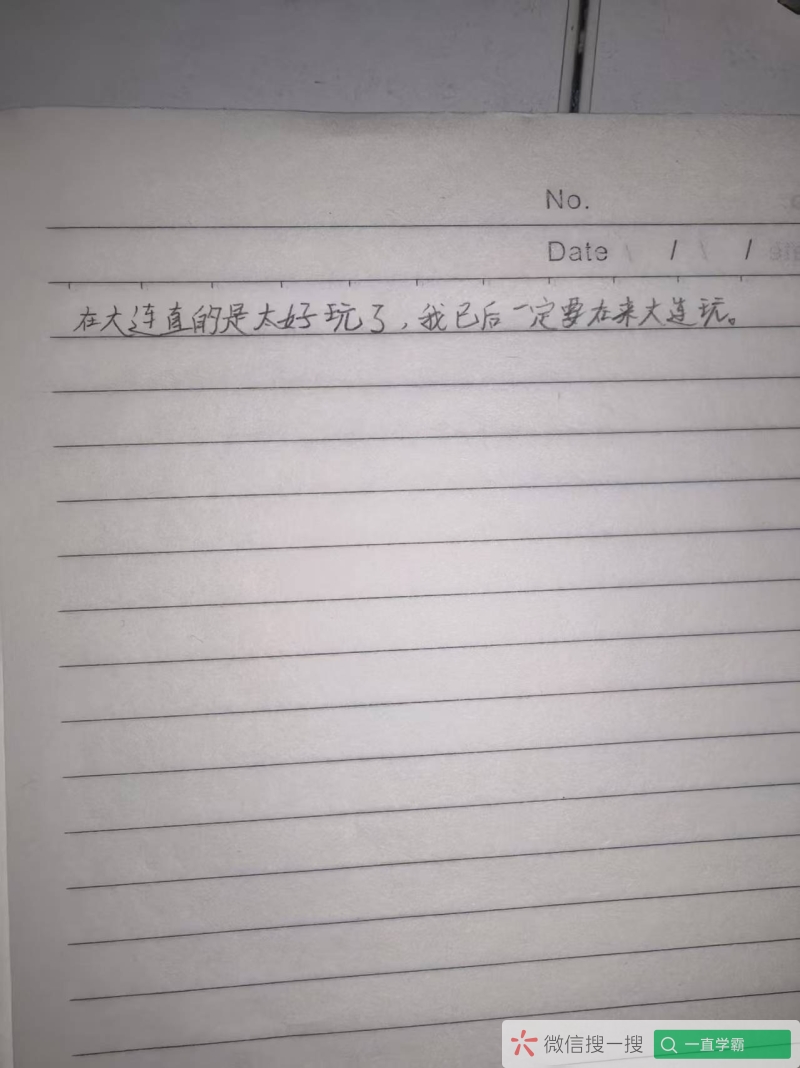 No.
Date / /
在大连直的是太好玩了，我已后一定要在来大连玩。
微信搜一搜 一直学霸